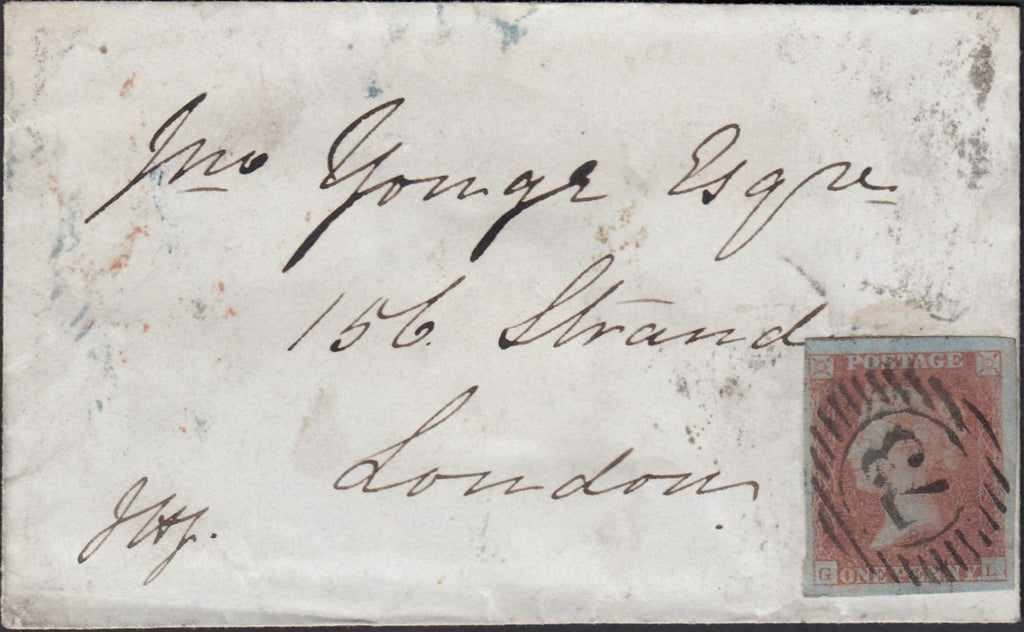 Jno Yonge Esqre
156 Strand
London
POSTAGE
G ONE PENNY L